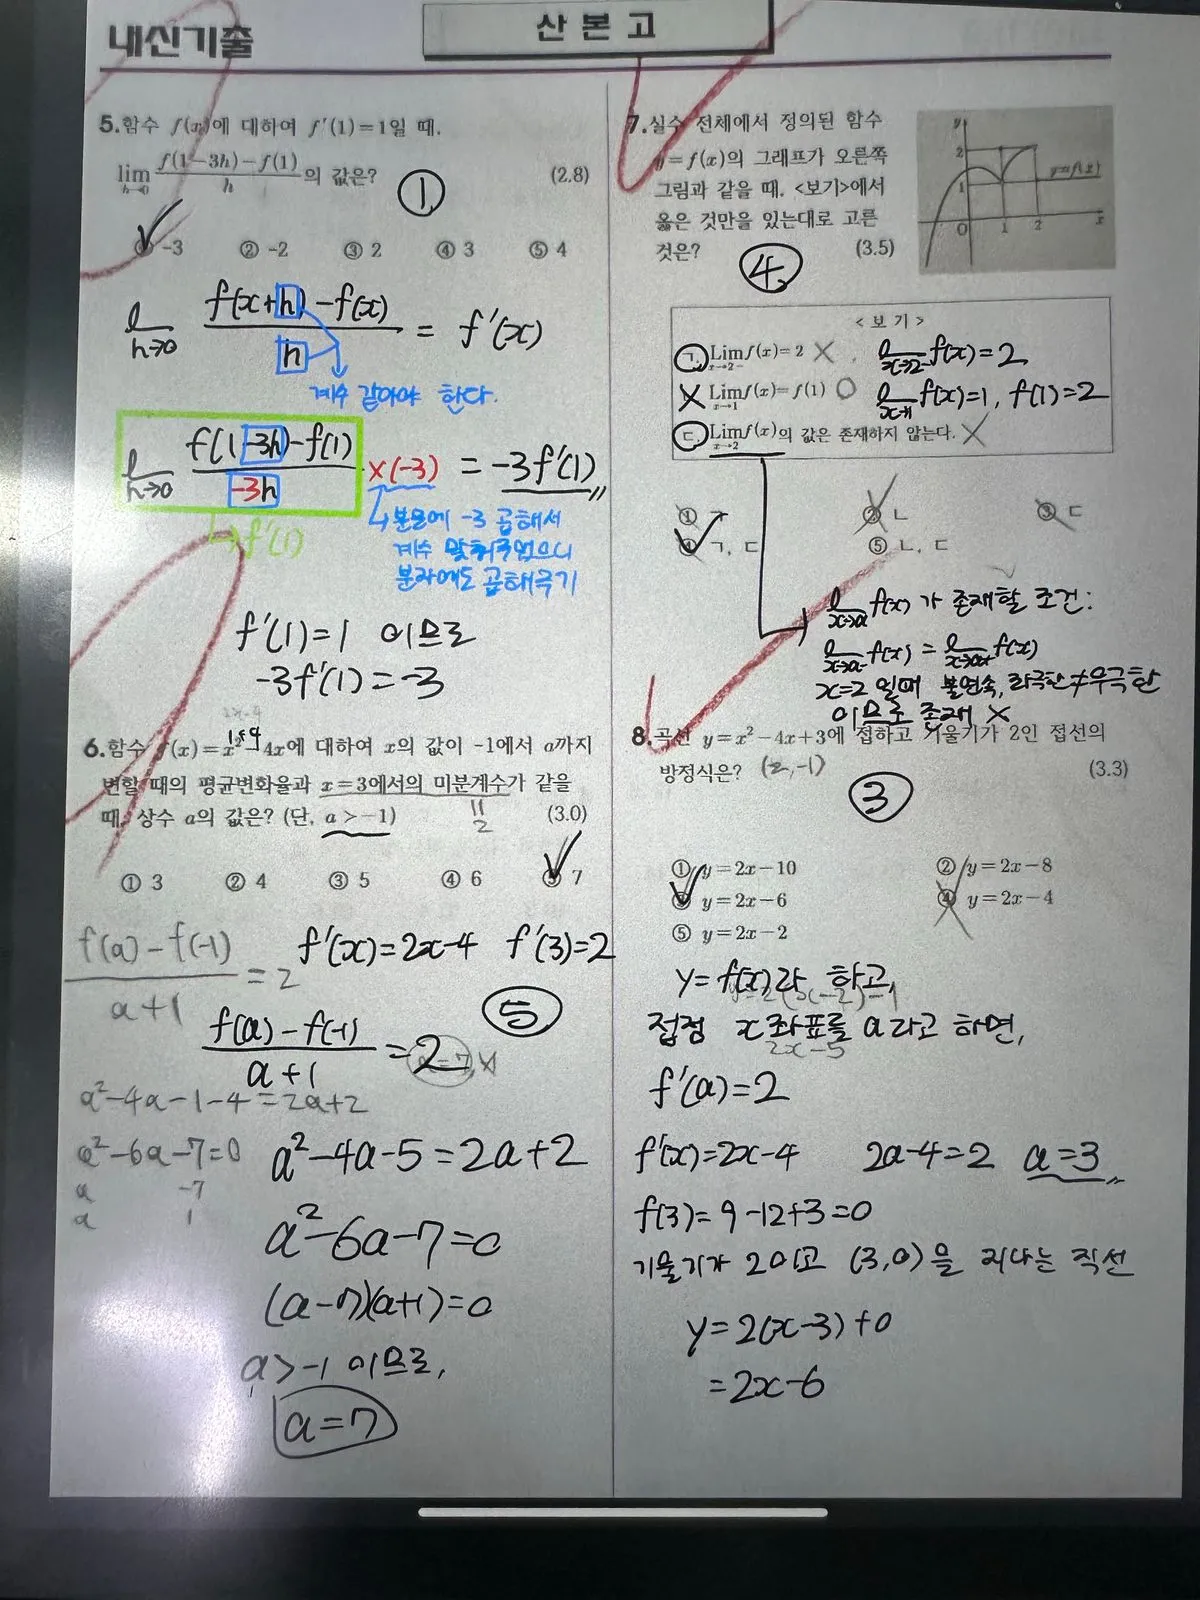 내신기출
산본고
5. 함수 f(x)에 대하여 f′(1)=1일 때,
lim h→0 f(1-3h)-f(1) / h 의 값은? (2.8)
①
① -3 ② -2 ③ 2 ④ 3 ⑤ 4
l h→0 f(x+h)-f(x) / h = f′(x)
계수 같아야 한다.
l h→0 f(1-3h)-f(1) / -3h ×(-3) = -3f′(1)
f′(1)
분모에 -3 곱해서
계수 맞춰주었으니
분자에도 곱해주기
f′(1)=1 이므로
-3f′(1)=-3
6. 함수 f(x)=x²-4x에 대하여 x의 값이 -1에서 a까지
변할 때의 평균변화율과 x=3에서의 미분계수가 같을
때, 상수 a의 값은? (단, a>-1) (3.0)
2
① 3 ② 4 ③ 5 ④ 6 ⑤ 7
f(a)-f(-1) / a+1 = 2
f′(x)=2x-4 f′(3)=2
⑤
f(a)-f(-1) / a+1 = 2
a²-4a-1-4=2a+2
a²-6a-7=0
a -7
a 1
a²-4a-5=2a+2
a²-6a-7=0
(a-7)(a+1)=0
a>-1 이므로,
a=7
7. 실수 전체에서 정의된 함수
y=f(x)의 그래프가 오른쪽
그림과 같을 때, <보기>에서
옳은 것만을 있는대로 고른
것은? (3.5)
④
y
2
1
O 1 2 x
y=f(x)
<보기>
ㄱ. Lim x→2- f(x)=2 × l x→2- f(x)=2
Lim x→1 f(x)=f(1) ○ l x→1 f(x)=1, f(1)=2
ㄷ. Lim x→2 f(x)의 값은 존재하지 않는다. ×
① ㄱ ② ㄴ ③ ㄷ
④ ㄱ, ㄷ ⑤ ㄴ, ㄷ
l x→a f(x) 가 존재할 조건:
l x→a- f(x) = l x→a+ f(x)
x=2 일때 불연속, 좌극한≠우극한
이므로 존재 ×
8. 곡선 y=x²-4x+3에 접하고 기울기가 2인 접선의
방정식은? (2,-1) (3.3)
③
① y=2x-10 ② y=2x-8
③ y=2x-6 ④ y=2x-4
⑤ y=2x-2
y=f(x)라 하고,
접점 x좌표를 a라고 하면,
2x-5
f′(a)=2
f′(x)=2x-4 2a-4=2 a=3
f(3)=9-12+3=0
기울기가 2이고 (3,0)을 지나는 직선
y=2(x-3)+0
=2x-6